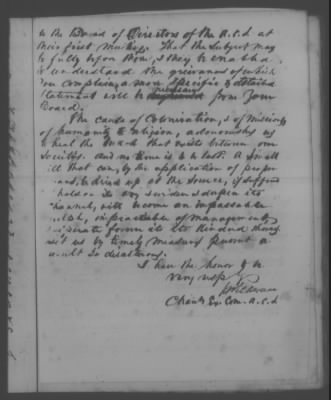 to the Board of Directors of the A.C.S at
their first Meeting. That the Subject may
be fully before them, & they be enabled
to understand the grievances of which
you complain, a more Specific & detailed
Statement will be necessary from your
Board.
The Cause of Colonization, & of Missions
of humanity & religion, admonishes us
to heal the breach that exists between our
Societies. and no time is to be lost. A Small
rill that can, by the application of proper
and, be dried up at the Source, if suffered
to hold on its way & widen & deepen its
channel, will become an impassable
unless
us by timely measures prevent a
result so disastrous.
I have the honor &c
very resp
Chairn Ex. Com. A.C.S